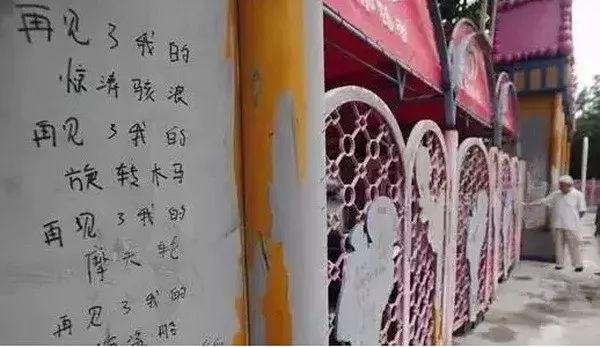 再见了我的
惊涛骇浪
再见了我的
旋转木马
再见了我的
摩天轮
再见了我的
海盗船